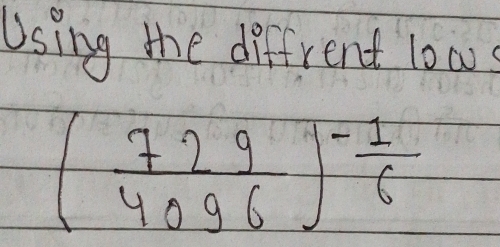 Using the diffrent lows
(729/4096)^-1/6